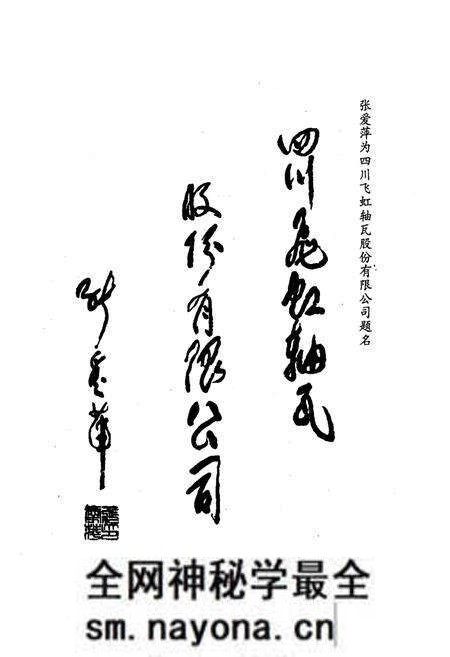 张爱萍为四川飞虹轴瓦股份有限公司题名
四川飞虹轴瓦
股份有限公司
张爱萍
全网神秘学最全
sm.nayona.cn